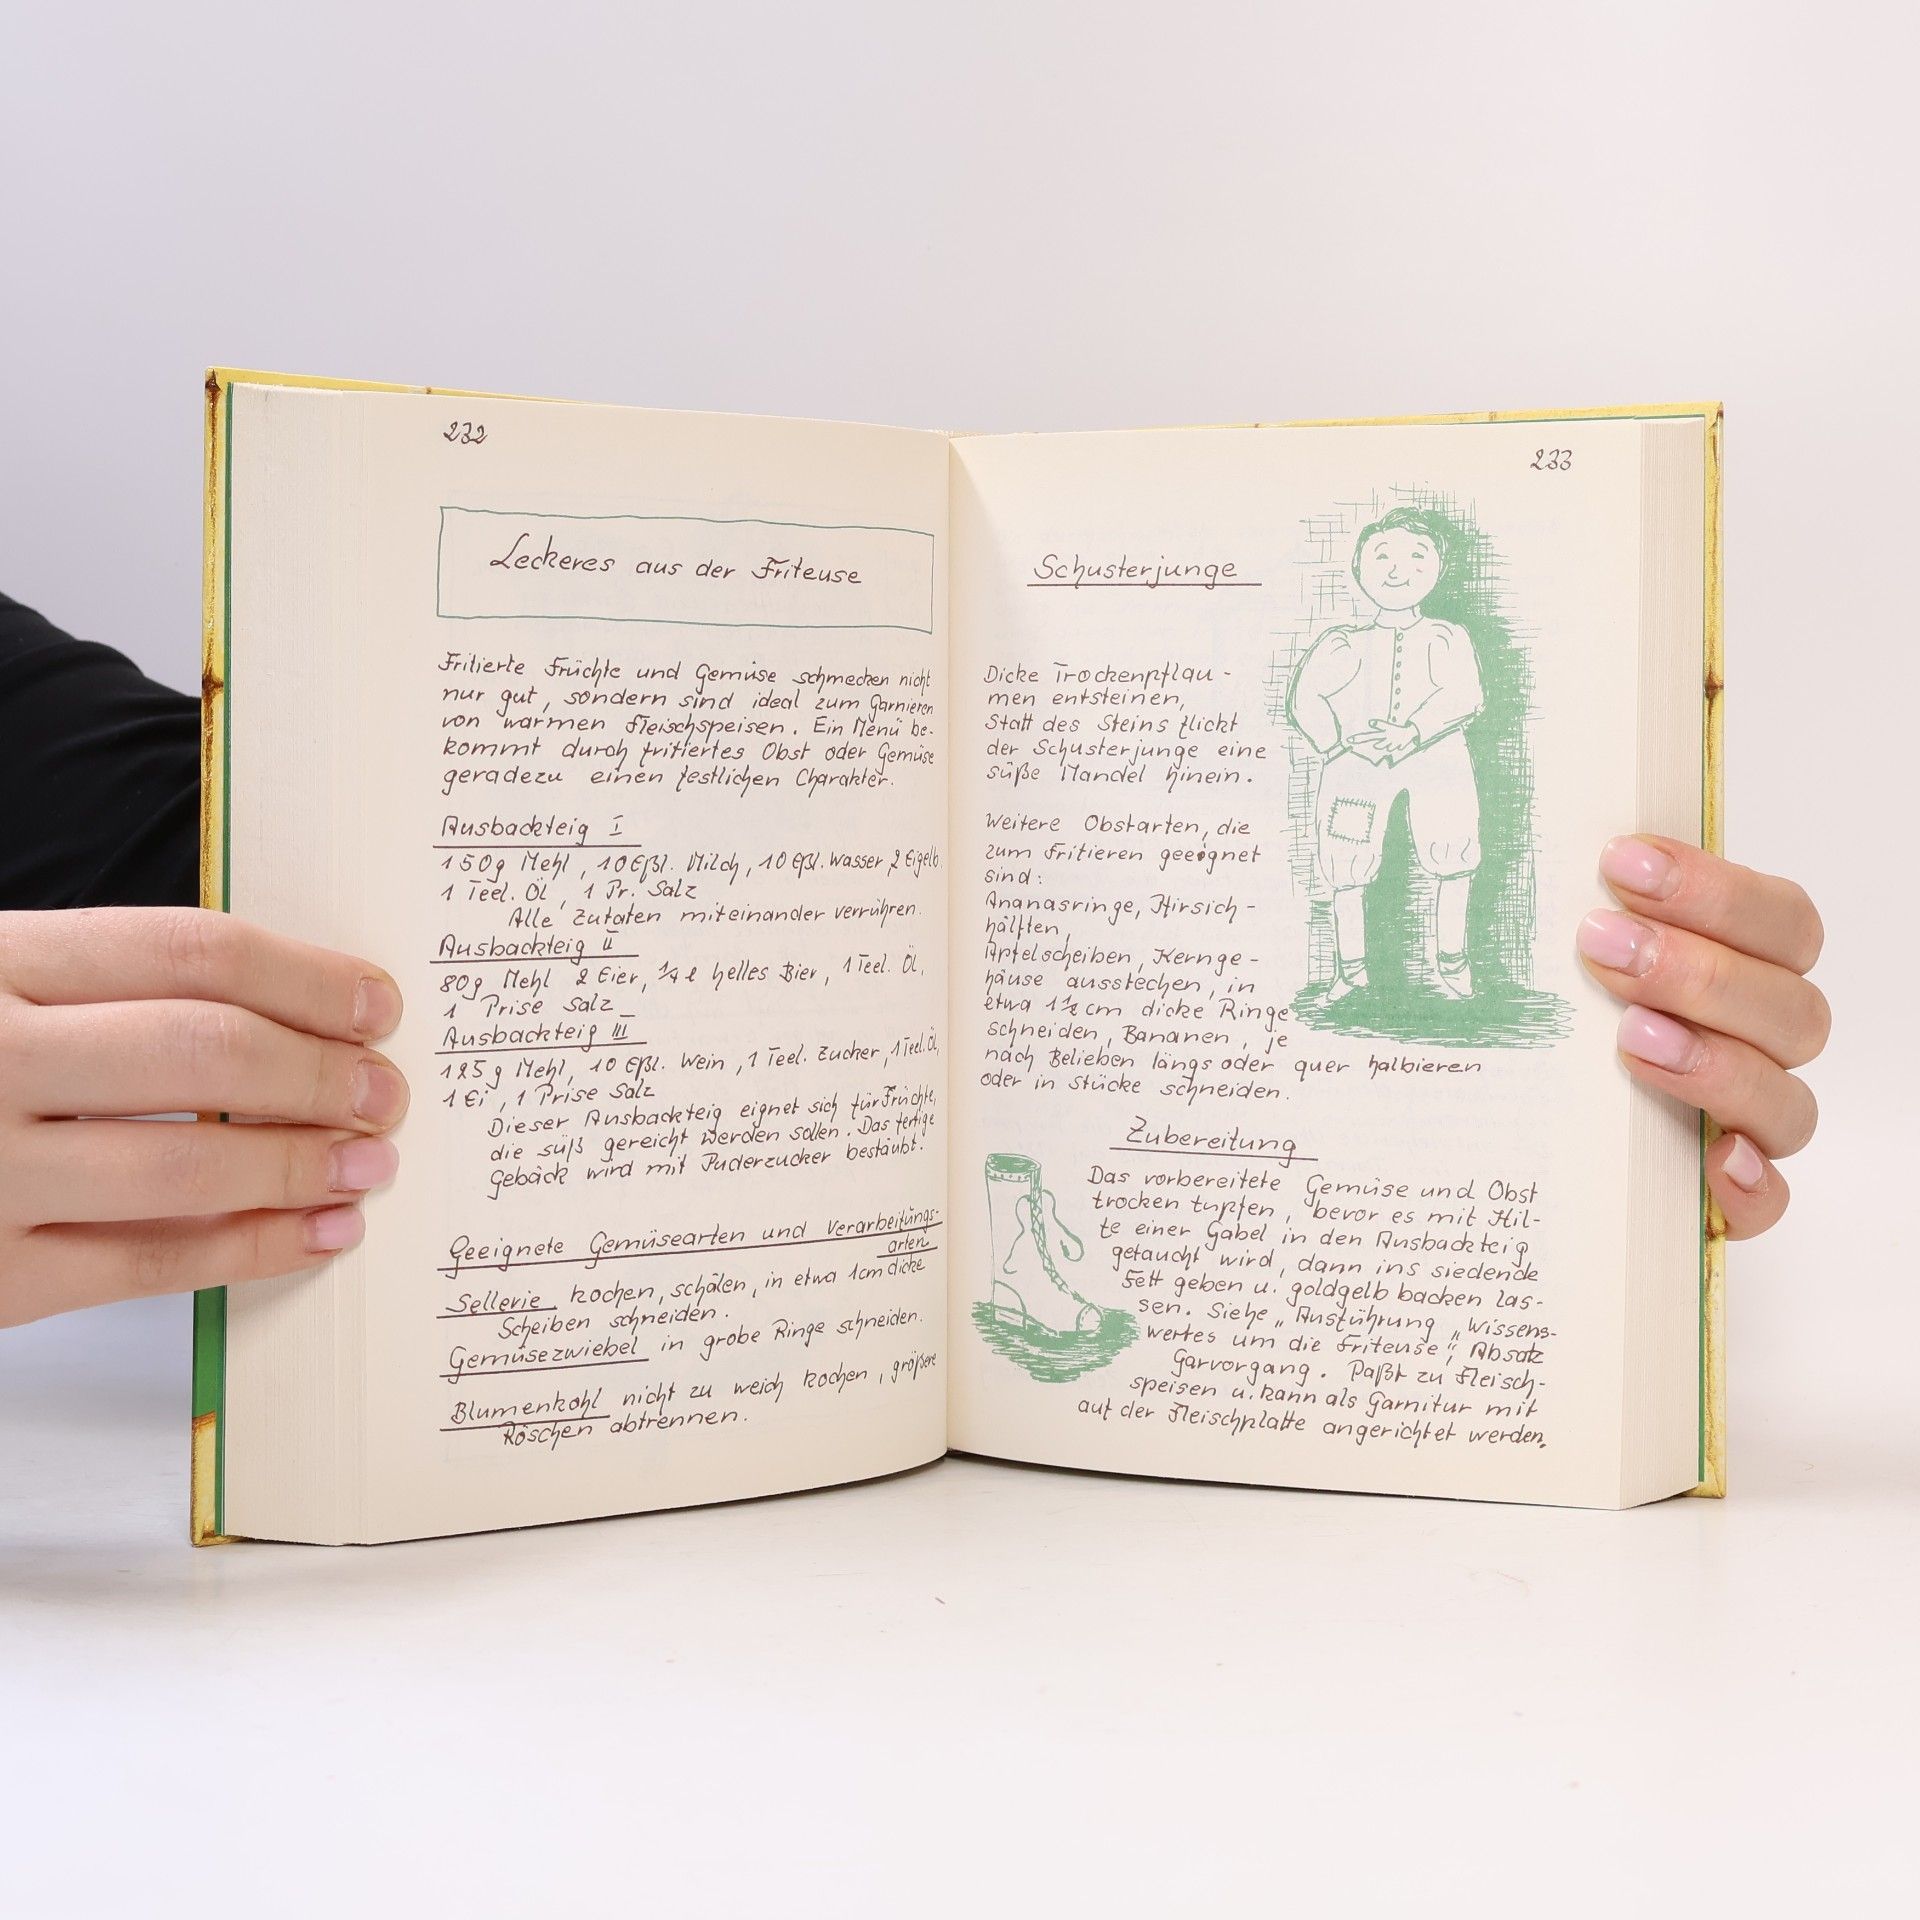 232
Leckeres aus der Friteuse
Fritierte Früchte und Gemüse schmecken nicht
nur gut, sondern sind ideal zum Garnieren
von warmen Fleischspeisen. Ein Menü be-
kommt durch fritiertes Obst oder Gemüse
geradezu einen festlichen Charakter.
Ausbackteig I
150g Mehl, 10 Eßl. Milch, 10 Eßl. Wasser, 2 Eigelb
1 Teel. Öl, 1 Pr. Salz
Alle Zutaten miteinander verrühren.
Ausbackteig II
80g Mehl 2 Eier, 1/4 l helles Bier, 1 Teel. Öl,
1 Prise Salz
Ausbackteig III
125g Mehl, 10 Eßl. Wein, 1 Teel. Zucker, 1 Teel. Öl,
1 Ei, 1 Prise Salz
Dieser Ausbackteig eignet sich für Früchte,
die süß gereicht werden sollen. Das fertige
Gebäck wird mit Puderzucker bestäubt.
Geeignete Gemüsearten und Verarbeitungs-
arten
Sellerie kochen, schälen, in etwa 1cm dicke
Scheiben schneiden.
Gemüsezwiebel in grobe Ringe schneiden.
Blumenkohl nicht zu weich kochen, größere
Röschen abtrennen.
233
Schusterjunge
Dicke Trockenpflau-
men entsteinen,
statt des Steins flickt
der Schusterjunge eine
süße Mandel hinein.
Weitere Obstarten, die
zum Fritieren geeignet
sind:
Ananasringe, Pfirsich-
hälften,
Apfelscheiben, Kernge-
häuse ausstechen, in
etwa 1½ cm dicke Ringe
schneiden, Bananen, je
nach Belieben längs oder quer halbieren
oder in Stücke schneiden.
Zubereitung
Das vorbereitete Gemüse und Obst
trocken tupfen, bevor es mit Hil-
fe einer Gabel in den Ausbackteig
getaucht wird, dann ins siedende
Fett geben u. goldgelb backen las-
sen. Siehe „Ausführung „Wissens-
wertes um die Friteuse", Absatz
Garvorgang. Paßt zu Fleisch-
speisen u. kann als Garnitur mit
auf der Fleischplatte angerichtet werden.